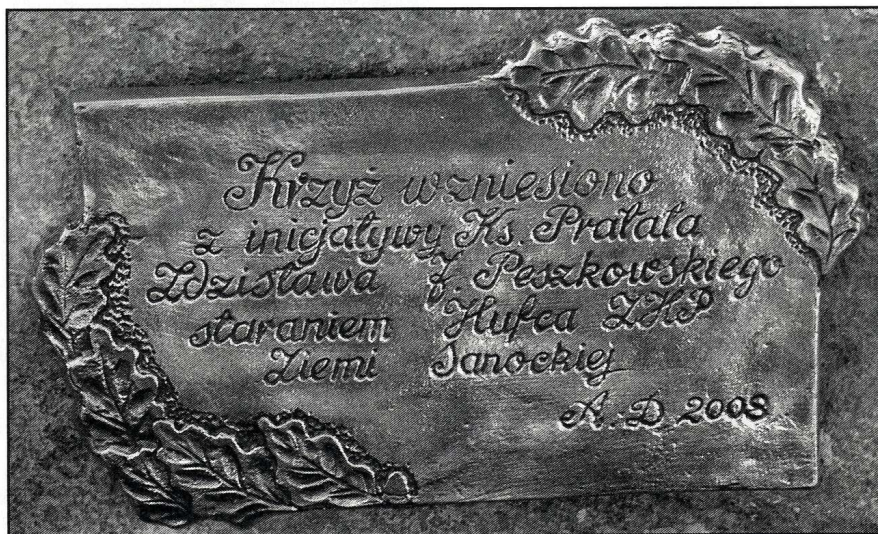 Krzyż wzniesiono
z inicjatywy Ks. Prałata
Zdzisława J. Peszkowskiego
staraniem Hufca ZHP
Ziemi Sanockiej
A.D. 2008